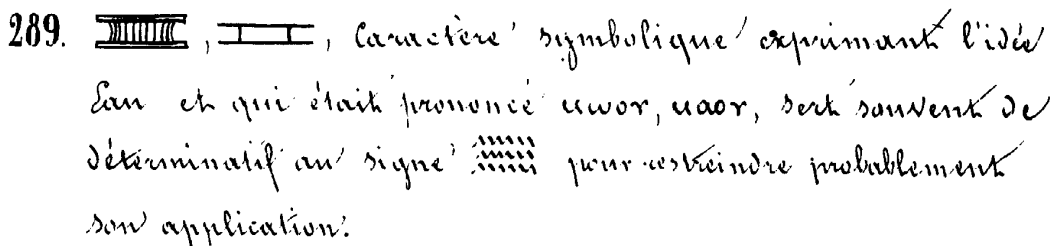 289. , , Caractère symbolique exprimant l'idée
Eau et qui était prononcé ⲙⲱⲟⲩ, ⲙⲁⲟⲩ, sert souvent de
déterminatif au signe 𓈗 pour restreindre probablement
son application.